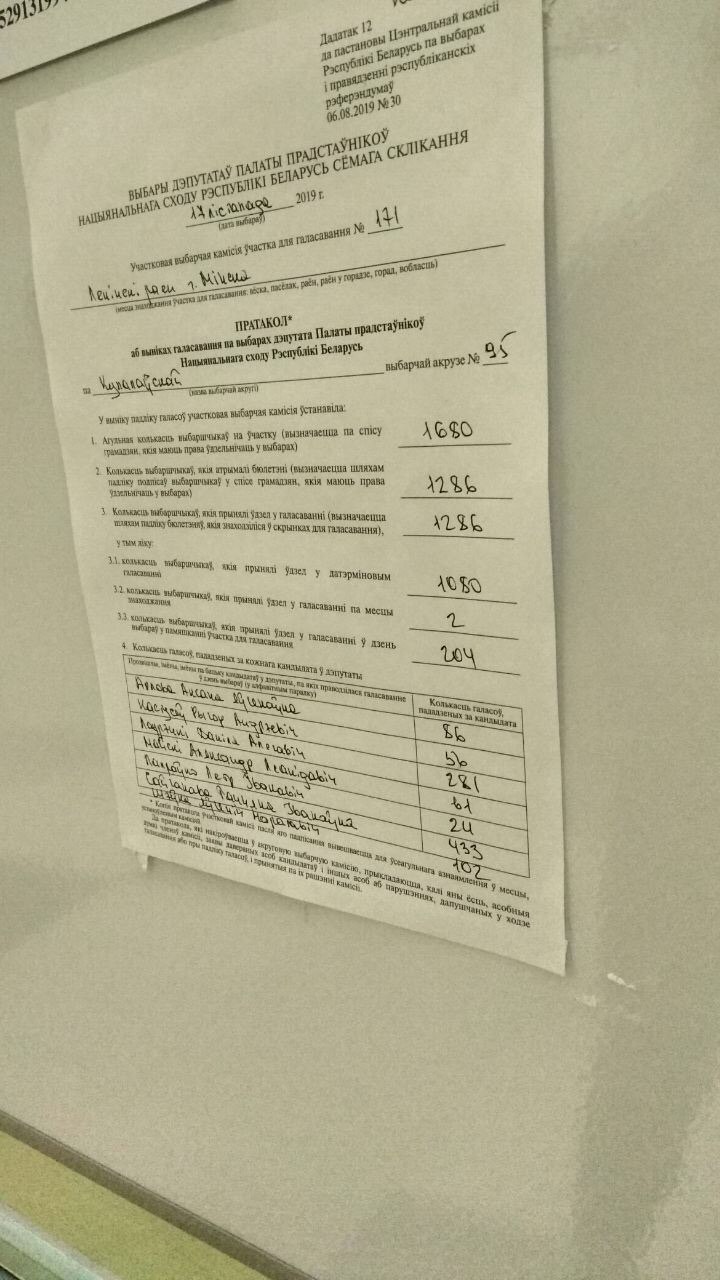 5291319
Дадатак 12
да пастановы Цэнтральнай камісіі
Рэспублікі Беларусь па выбарах
і правядзенні рэспубліканскіх
рэферэндумаў
06.08.2019 № 30
ВЫБАРЫ ДЭПУТАТАЎ ПАЛАТЫ ПРАДСТАЎНІКОЎ
НАЦЫЯНАЛЬНАГА СХОДУ РЭСПУБЛІКІ БЕЛАРУСЬ СЁМАГА СКЛІКАННЯ
17 лістапада 2019 г.
(дата выбараў)
Участковая выбарчая камісія ўчастка для галасавання № 171
раен г. Мінска
(месца знаходжання ўчастка для галасавання: вёска, пасёлак, раён, раён у горадзе, горад, вобласць)
ПРАТАКОЛ*
аб выніках галасавання на выбарах дэпутата Палаты прадстаўнікоў
Нацыянальнага сходу Рэспублікі Беларусь
па Купалаўскай выбарчай акрузе № 95
(назва выбарчай акругі)
У выніку падліку галасоў участковая выбарчая камісія ўстанавіла:
1. Агульная колькасць выбаршчыкаў на ўчастку (вызначаецца па спісу
грамадзян, якія маюць права ўдзельнічаць у выбарах) 1680
2. Колькасць выбаршчыкаў, якія атрымалі бюлетэні (вызначаецца шляхам
падліку подпісаў выбаршчыкаў у спісе грамадзян, якія маюць права
ўдзельнічаць у выбарах) 1286
3. Колькасць выбаршчыкаў, якія прынялі ўдзел у галасаванні (вызначаецца
шляхам падліку бюлетэняў, якія знаходзіліся ў скрынках для галасавання), 1286
у тым ліку:
3.1. колькасць выбаршчыкаў, якія прынялі ўдзел у датэрміновым
галасаванні 1080
3.2. колькасць выбаршчыкаў, якія прынялі ўдзел у галасаванні па месцы
знаходжання 2
3.3. колькасць выбаршчыкаў, якія прынялі ўдзел у галасаванні ў дзень
выбараў у памяшканні ўчастка для галасавання 204
4. Колькасць галасоў, пададзеных за кожнага кандыдата ў дэпутаты
Прозвішчы, імёны, імёны па бацьку кандыдатаў у дэпутаты, па якіх праводзілася галасаванне
ў дзень выбараў (у алфавітным парадку)
Колькасць галасоў,
пададзеных за кандыдата
Аксана 86
Рыгор Андрэевіч 56
Даніла Алегавіч 281
Аляксандр Леанідавіч 61
Пётр Іванавіч 24
Іванаўна 433
102
* Копія пратакола ўчастковай камісіі пасля яго падпісання вывешваецца для ўсеагульнага азнаямлення ў месцы,
устаноўленым камісіяй.
Да пратакола, які накіроўваецца ў акруговую выбарчую камісію, прыкладаюцца, калі яны ёсць, асобныя
думкі членаў камісіі, заявы давераных асоб кандыдатаў і іншых асоб аб парушэннях, дапушчаных у ходзе
галасавання або пры падліку галасоў, і прынятыя па іх рашэнні камісіі.